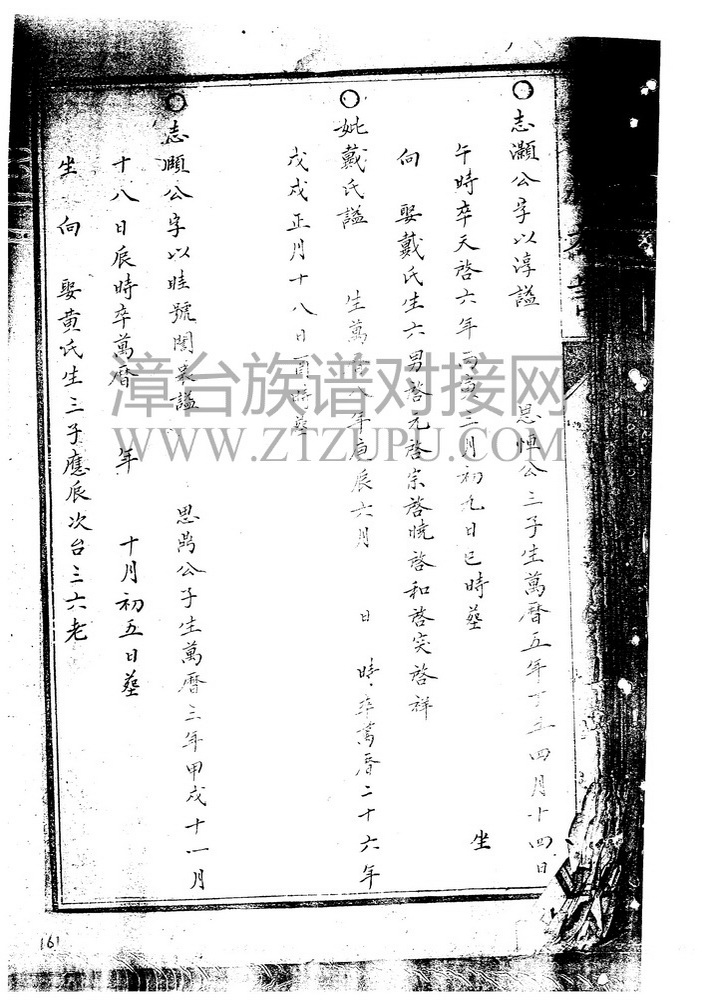 志灝公字以淳謚 思惮公三子生萬曆五年丁丑四月十四日
午時卒天啓六年丙寅三月初九日巳時葬 坐
向 娶戴氏生六男啓元啓宗啓曉啓和啓突啓祥
妣戴氏謚 生萬曆八年庚辰六月 日 時卒萬曆二十六年
戊戌正月十八日酉時葬
志灝公字以眭號閩 謚 思 公子生萬曆三年甲戌十一月
十八日辰時卒萬曆 年 十月初五日葬
坐 向 娶黄氏生三子應辰次台三六老
漳台族谱对接网
WWW.ZTZUPU.COM
161